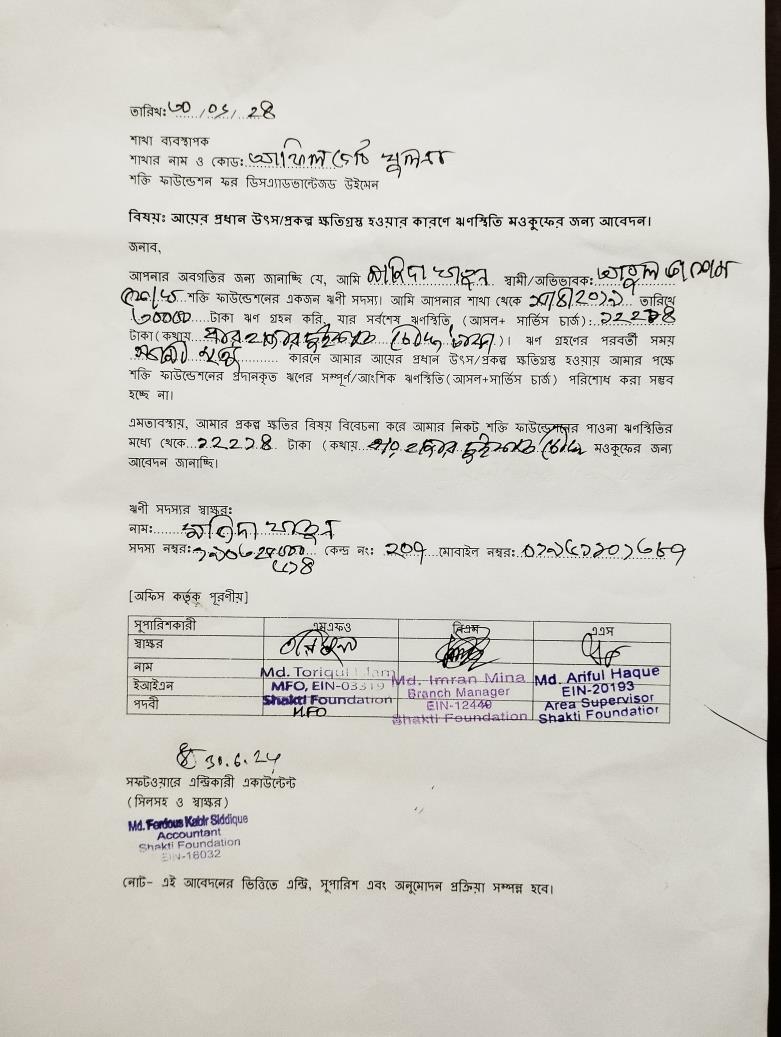 তারিখ: ৩০/০৬/২৪
শাখা ব্যবস্থাপক
শাখার নাম ও কোড: আফিল গেট খুলনা
শক্তি ফাউন্ডেশন ফর ডিসএ্যাডভান্টেজড উইমেন
বিষয়ঃ আয়ের প্রধান উৎস/প্রকল্প ক্ষতিগ্রস্থ হওয়ার কারণে ঋণস্থিতি মওকুফের জন্য আবেদন।
জনাব,
আপনার অবগতির জন্য জানাচ্ছি যে, আমি খাতুন স্বামী/অভিভাবক: আবুল
শক্তি ফাউন্ডেশনের একজন ঋণী সদস্য। আমি আপনার শাখা থেকে তারিখে
৩০০০০ টাকা ঋণ গ্রহন করি, যার সর্বশেষ ঋণস্থিতি (আসল+ সার্ভিস চার্জ):
টাকা(কথায় হাজার দুইশত টাকা)। ঋণ গ্রহণের পরবর্তী সময়
কারনে আমার আয়ের প্রধান উৎস/প্রকল্প ক্ষতিগ্রস্থ হওয়ায় আমার পক্ষে
শক্তি ফাউন্ডেশনের প্রদানকৃত ঋণের সম্পূর্ণ/আংশিক ঋণস্থিতি(আসল+সার্ভিস চার্জ) পরিশোধ করা সম্ভব
হচ্ছে না।
এমতাবস্থায়, আমার প্রকল্প ক্ষতির বিষয় বিবেচনা করে আমার নিকট শক্তি ফাউন্ডেশনের পাওনা ঋণস্থিতির
মধ্যে থেকে টাকা (কথায় হাজার দুইশত মওকুফের জন্য
আবেদন জানাচ্ছি।
ঋণী সদস্যর স্বাক্ষর:
নাম: খাতুন
সদস্য নম্বর: কেন্দ্র নং: ২০৭ মোবাইল নম্বর:
[অফিস কর্তৃক পূরণীয়]
সুপারিশকারী এমএফও বিএম এএস
স্বাক্ষর
নাম Md. Toriqul Islam Md. Imran Mina Md. Ariful Haque
ইআইএন MFO, EIN-03319 Branch Manager EIN-20193
পদবী Shakti Foundation EIN-12440 Area Supervisor
MFO Shakti Foundation Shakti Foundation
30.6.24
সফটওয়ারে এন্ট্রিকারী একাউন্টেন্ট
(সিলসহ ও স্বাক্ষর)
Md. Ferdous Kabir Siddique
Accountant
Shakti Foundation
EIN-16032
নোট- এই আবেদনের ভিত্তিতে এন্ট্রি, সুপারিশ এবং অনুমোদন প্রক্রিয়া সম্পন্ন হবে।